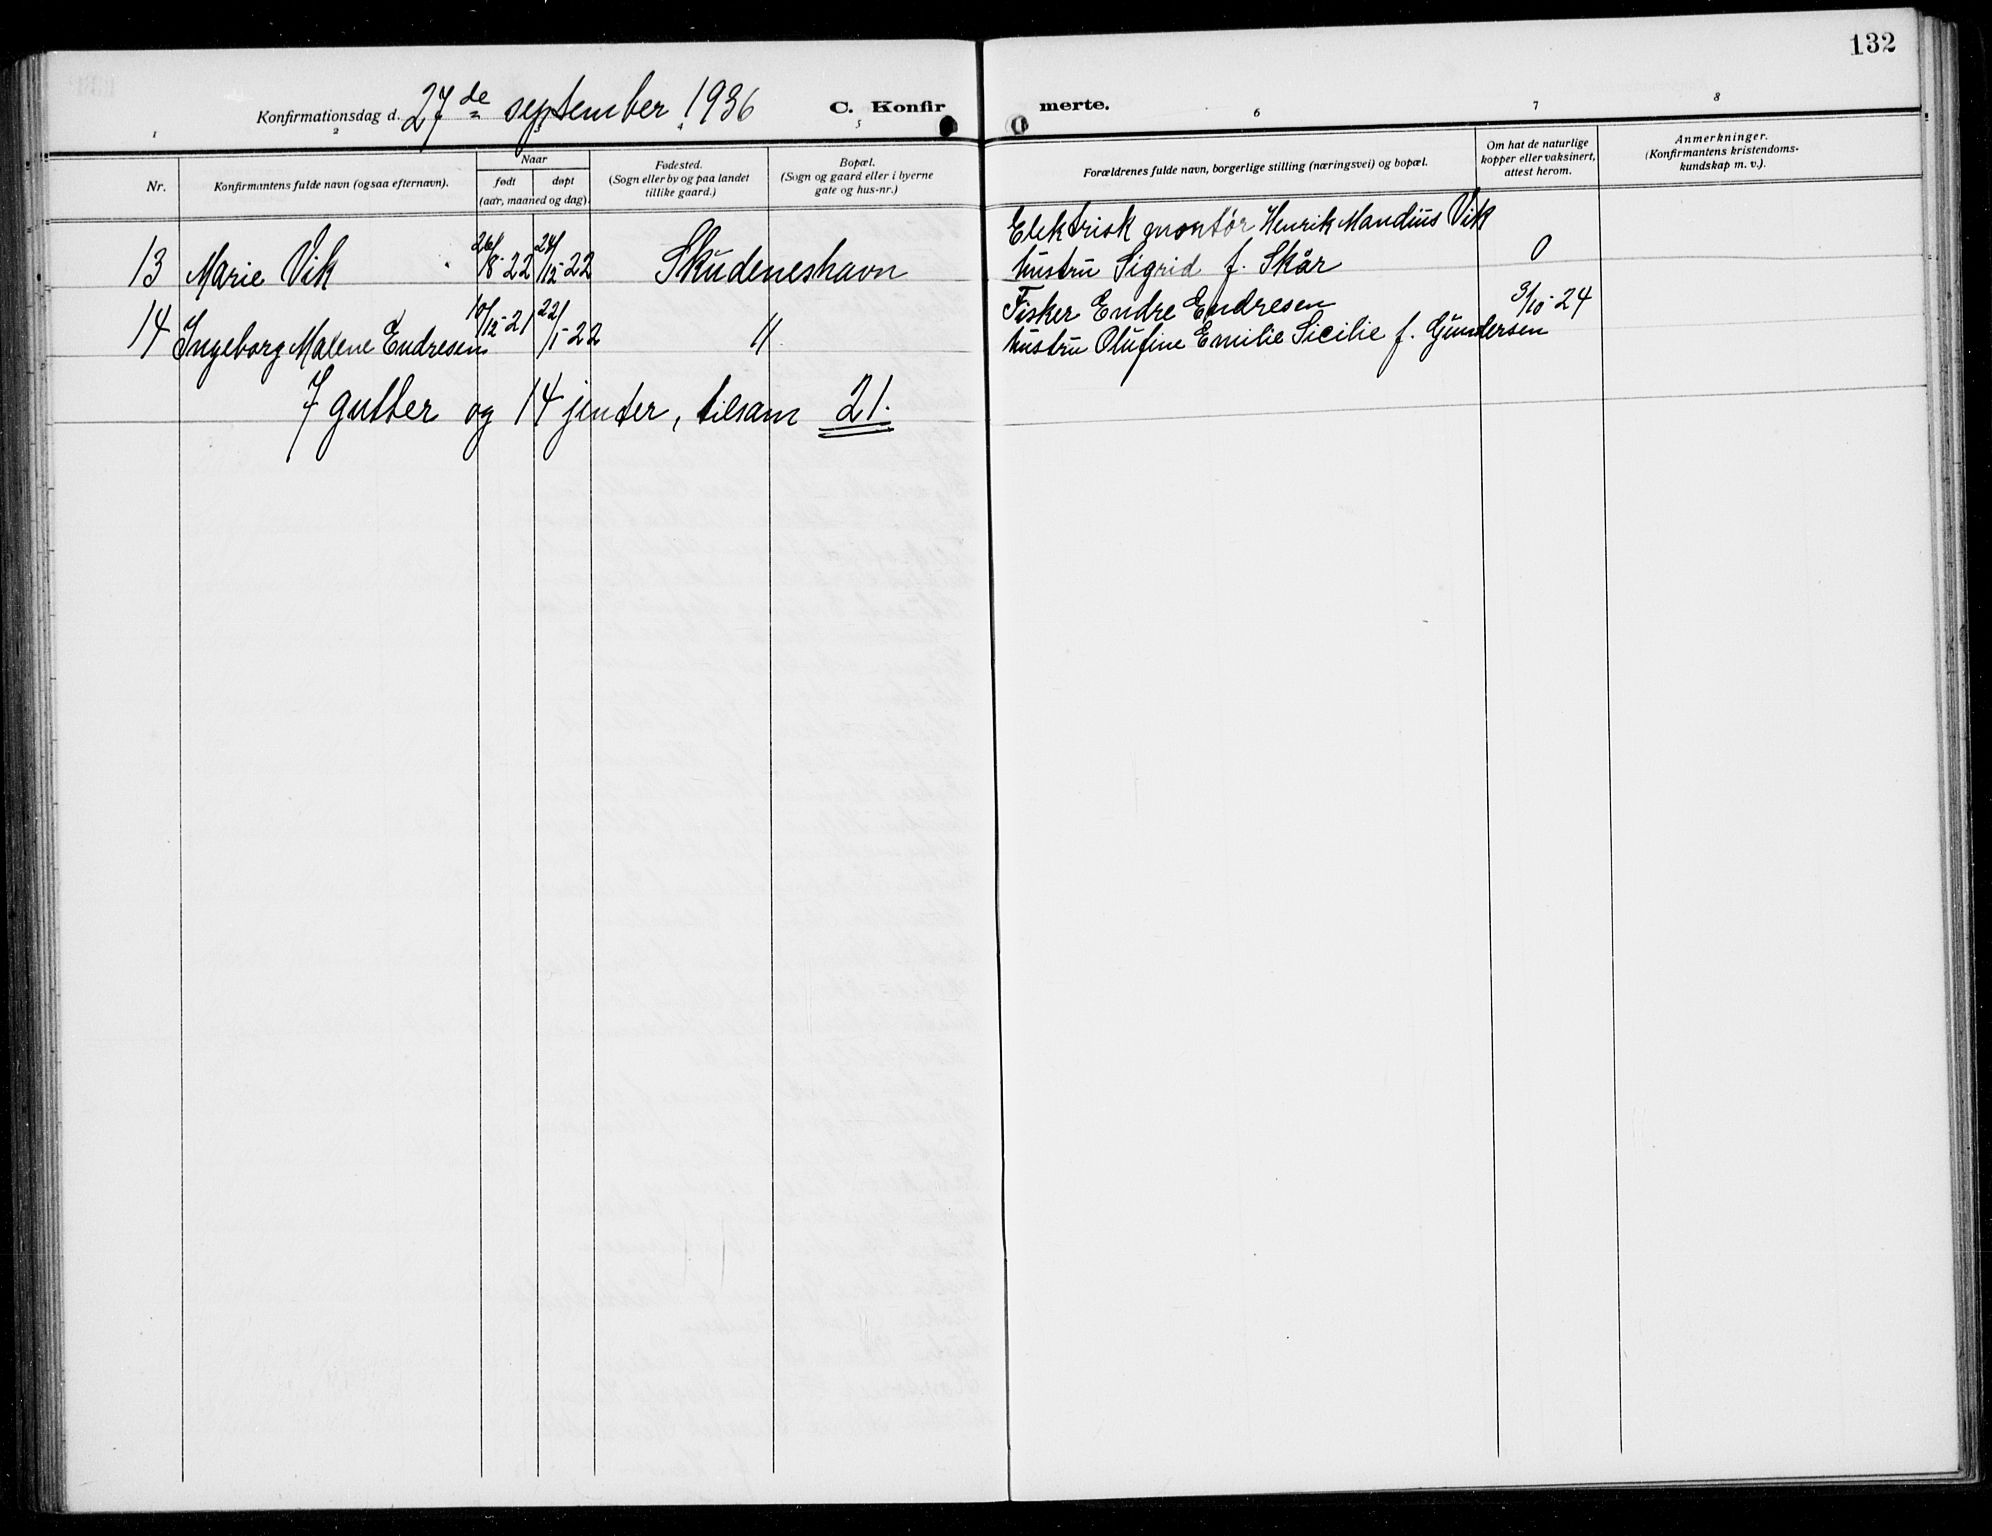 132
Konfirmationsdag d. 27de september 1936 C. Konfir merte.
1 2 3 5 6 7 8
Nr.
Konfirmantens fulde navn (ogsaa efternavn).
Naar
født døpt
(aar, maaned og dag).
Fødested.
(Sogn eller by og paa landet
tillike gaard.)
Bopæl.
(Sogn og gaard eller i byerne
gate og hus-nr.)
Forældrenes fulde navn, borgerlige stilling (næringsvei) og bopæl.
Om hat de naturlige
kopper eller vaksinert,
attest herom.
Anmerkninger.
(Konfirmantens kristendoms-
kundskap m. v.).
Elektrisk montør Henrik Mandius Vik
13 Marie Vik 26/8-22 24/12-22 Skudeneshavn hustru Sigrid f. Skår 0
Fisker Endre Endresen 3/10-24
14 Ingeborg Malene Endresen 10/12-21 22/1-22 " hustru Olufine Emilie Sicilie f. Gundersen
7 gutter og 14 jenter, tilsam 21.